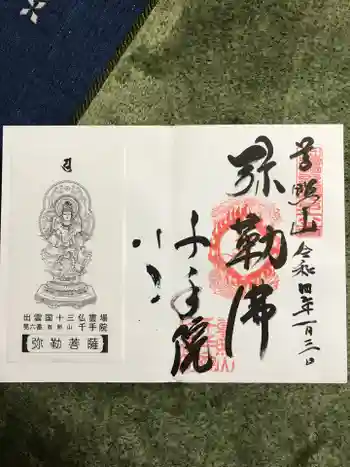 尊照山
令和四年一月三日
弥勒佛
千手院
出雲国十三仏霊場
第六番 尊照山 千手院
【弥勒菩薩】